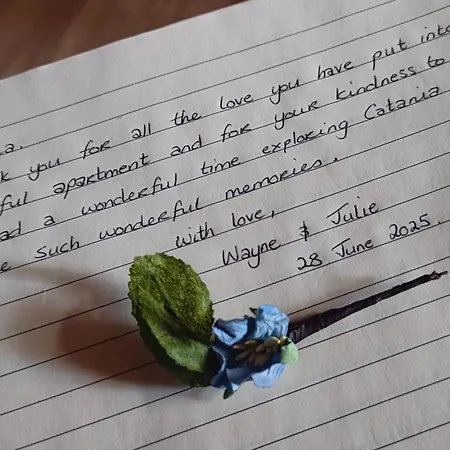 a.
k you for all the love you have put into
ful apartment and for your kindness to
ad a wonderful time exploring Catania
e such wonderful memories.
with love,
Wayne & Julie
28 June 2025.